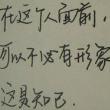 在这个人面前，
可以不必有形象
这是知己.